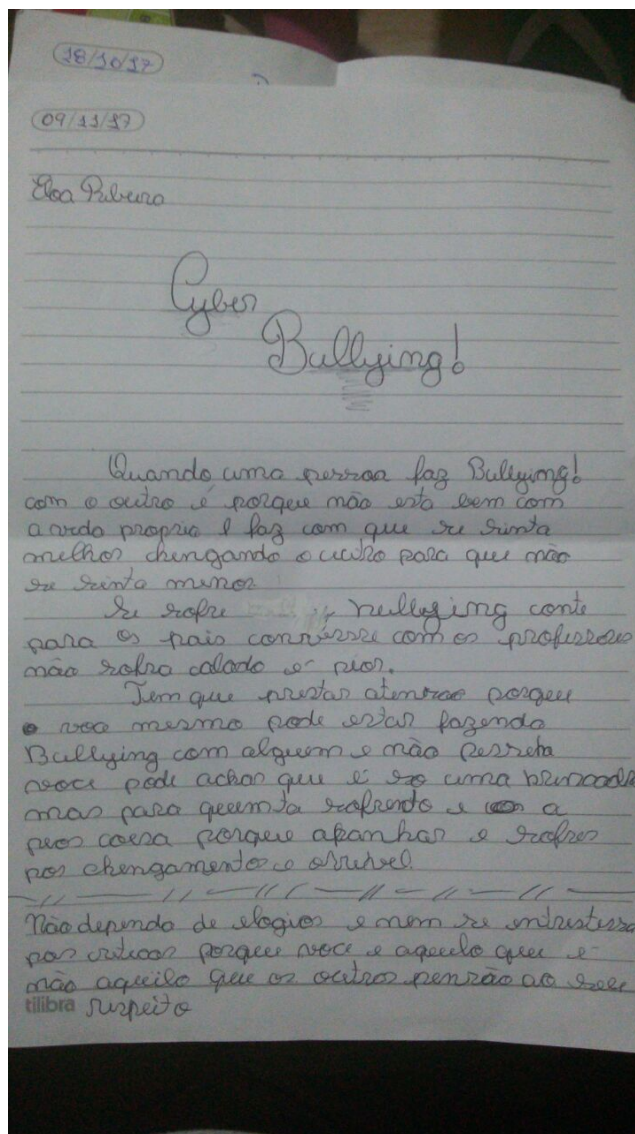 18/10/17
09/11/17
Eloa Ribeiro
Cyber
Bullying!
Quando uma pessoa faz Bullying!
com o outro é porque não esta bem com
a vida propria e faz com que se sinta
melhor chengando o outro para que não
se sinta menor
Se sofre bullying conte
para os pais converse com os professores
não sofra calado é pior.
Tem que prestar atencao porque
voce mesmo pode estar fazendo
Bullying com alguem e não perseba
voce pode achar que é so uma
mas para quem ta sofrendo e a
pior coisa porque apanhar e sofrer
por chengamento e orrivel.
Não dependa de elogios e nem se entristessa
por criticas porque voce e aquilo que é
não aquilo que os outros pensão ao seu
tilibra respeito